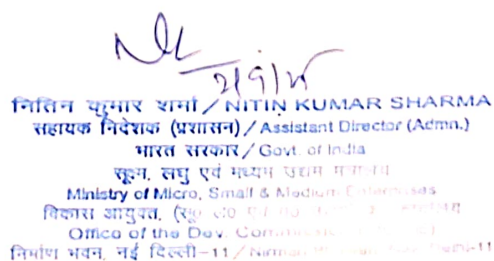 नितिन कुमार शर्मा / NITIN KUMAR SHARMA
सहायक निदेशक (प्रशासन) / Assistant Director (Admn.)
भारत सरकार / Govt. of India
सूक्ष्म, लघु एवं मध्यम उद्यम मंत्रालय
Ministry of Micro, Small & Medium Enterprises
विकास आयुक्त,
Office of the Dev.
निर्माण भवन, नई दिल्ली-11 / Nirman Delhi-11